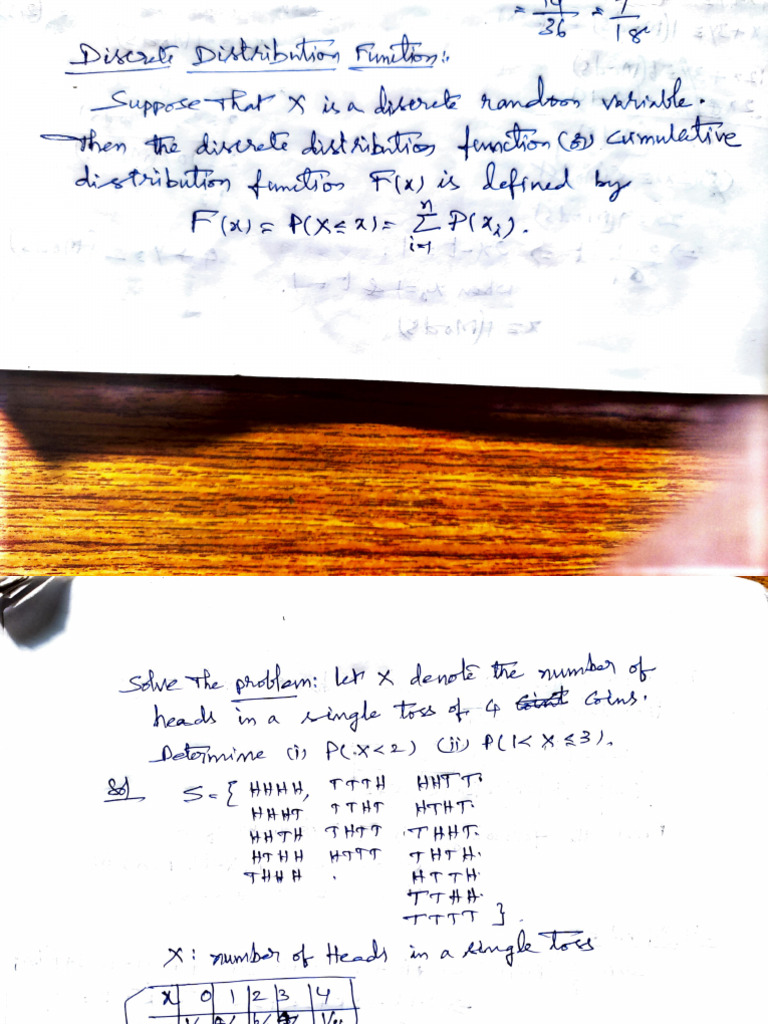 = 14/36 = 7/18
Discrete Distribution Function:
Suppose that X is a discrete random variable.
Then the discrete distribution function (or) cumulative
distribution function F(x) is defined by
F(x) = P(X ≤ x) = Σ_{i=1}^{n} P(x_i).
Solve the problem: let X denote the number of
heads in a single toss of 4 coins.
Determine (i) P(X<2) (ii) P(1< X ≤3).
Sol S = { HHHH, TTTH HHTT
HHHT TTHT HTHT
HHTH THTT THHT
HTHH HTTT THTH
THHH HTTH
TTHH
TTTT }.
X: number of Heads in a single toss
X 0 1 2 3 4